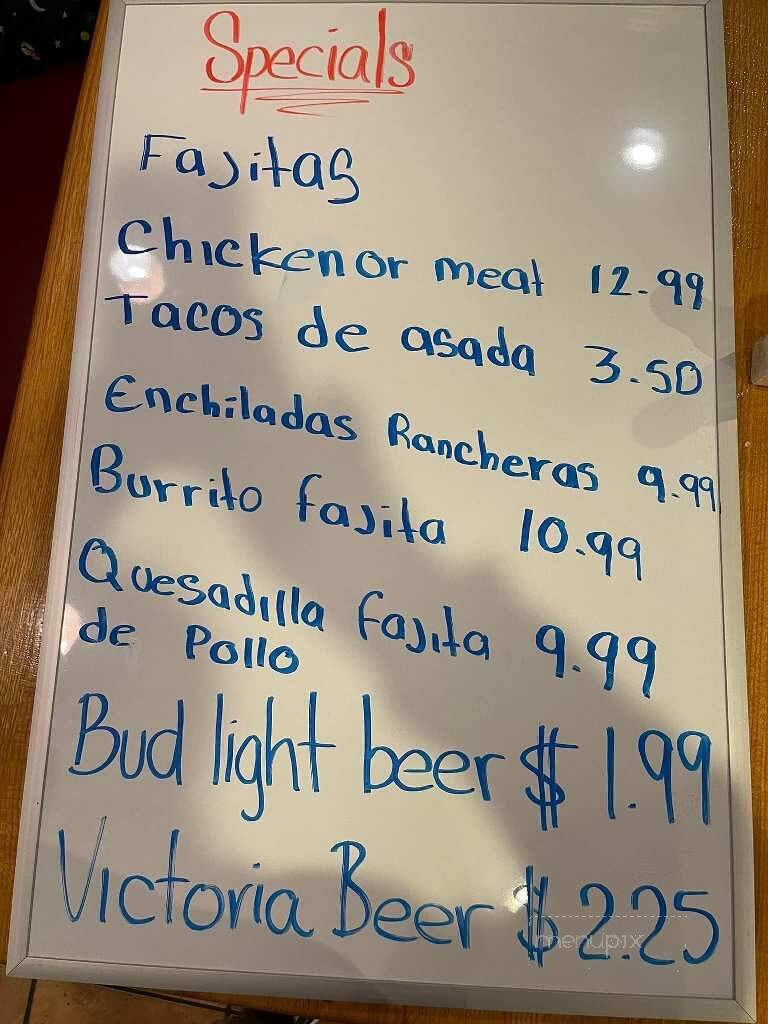 Specials
Fajitas
Chicken or meat 12.99
Tacos de asada 3.50
Enchiladas Rancheras 9.99
Burrito fajita 10.99
Quesadilla fajita 9.99
de Pollo
Bud light beer $1.99
Victoria Beer $2.25
menupix